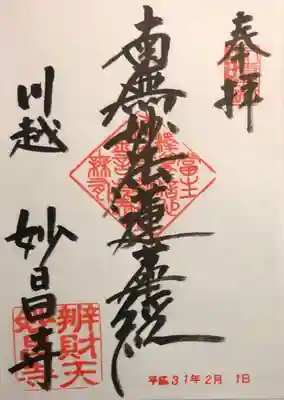 奉拝
南無妙法蓮華経
川越 妙昌寺
辨財天
妙昌寺
平成31年2月 1日